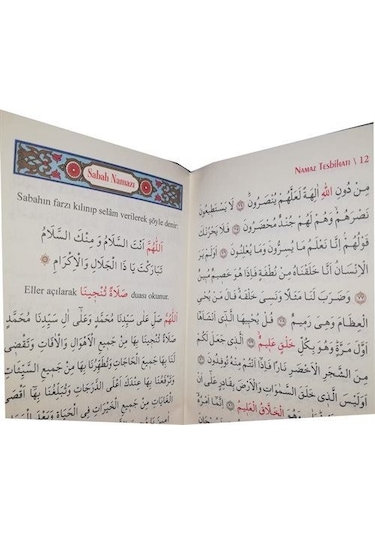 Sabah Namazı
Sabahın farzı kılınıp selâm verilerek şöyle denir:
اَللّٰهُمَّ اَنْتَ السَّلَامُ وَ مِنْكَ السَّلَامُ
تَبَارَكْتَ يَا ذَا الْجَلَالِ وَالْاِكْرَامِ
Eller açılarak صَلَاةً تُنْجِينَا duası okunur.
اَللّٰهُمَّ صَلِّ عَلٰى سَيِّدِنَا مُحَمَّدٍ وَعَلٰى اٰلِ سَيِّدِنَا مُحَمَّدٍ
صَلَاةً تُنْجِينَا بِهَا مِنْ جَمِيعِ الْاَهْوَالِ وَالْاٰفَاتِ وَتَقْضِى
لَنَا بِهَا جَمِيعَ الْحَاجَاتِ وَتُطَهِّرُنَا بِهَا مِنْ جَمِيعِ السَّيِّئَاتِ
وَتَرْفَعُنَا بِهَا عِنْدَكَ اَعْلَى الدَّرَجَاتِ وَتُبَلِّغُنَا بِهَا اَقْصَى
الْغَايَاتِ مِنْ جَمِيعِ الْخَيْرَاتِ فِى الْحَيَاةِ وَبَعْدَ
NAMAZ TESBİHATI \ 12
مِنْ دُونِ اللّٰهِ اٰلِهَةً لَعَلَّهُمْ يُنْصَرُونَ ﴿٧٤﴾ لَا يَسْتَطِيعُونَ
نَصْرَهُمْ وَهُمْ لَهُمْ جُنْدٌ مُحْضَرُونَ ﴿٧٥﴾ فَلَا يَحْزُنْكَ
قَوْلُهُمْ اِنَّا نَعْلَمُ مَا يُسِرُّونَ وَمَا يُعْلِنُونَ ﴿٧٦﴾ اَوَلَمْ يَرَ
الْاِنْسَانُ اَنَّا خَلَقْنَاهُ مِنْ نُطْفَةٍ فَاِذَا هُوَ خَصِيمٌ مُبِينٌ
﴿٧٧﴾ وَضَرَبَ لَنَا مَثَلًا وَنَسِىَ خَلْقَهُ قَالَ مَنْ يُحْيِى
الْعِظَامَ وَهِىَ رَمِيمٌ ﴿٧٨﴾ قُلْ يُحْيِيهَا الَّذِى اَنْشَاَهَا
اَوَّلَ مَرَّةٍ وَهُوَ بِكُلِّ خَلْقٍ عَلِيمٌ ﴿٧٩﴾ اَلَّذِى جَعَلَ لَكُمْ
مِنَ الشَّجَرِ الْاَخْضَرِ نَارًا فَاِذَا اَنْتُمْ مِنْهُ تُوقِدُونَ ﴿٨٠﴾
اَوَلَيْسَ الَّذِى خَلَقَ السَّمٰوَاتِ وَالْاَرْضَ بِقَادِرٍ عَلٰى اَنْ
وَهُوَ الْخَلَّاقُ الْعَلِيمُ ﴿٨١﴾ اِنَّمَا اَمْرُهُ